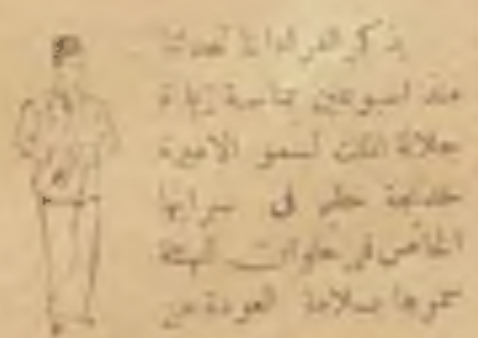 يذكر القراء اننا تحدثنا
منذ اسبوعين بمناسبة زيارة
جلالة الملك لسمو الاميرة
خديجة حليم في سرايها
الخاص في حلوان لتهنئة
سموها بسلامة العودة من